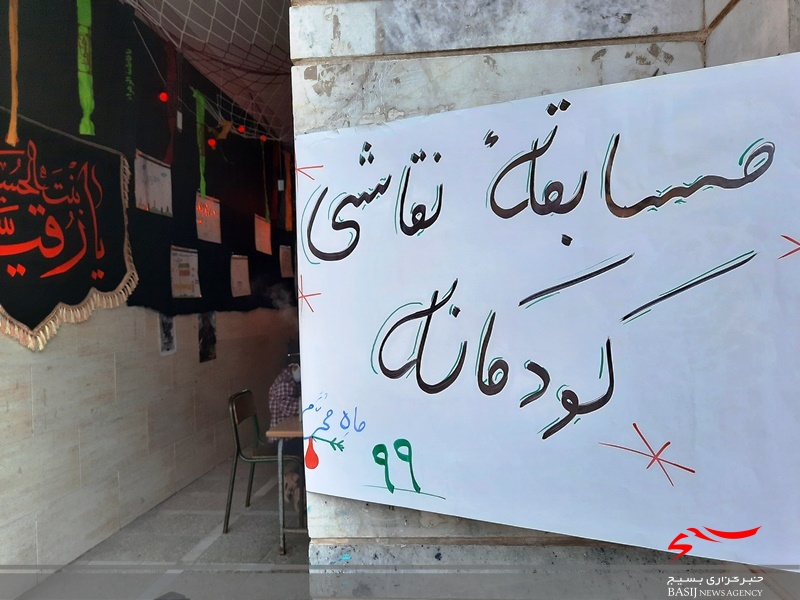 مسابقهٔ نقاشی
کودکانه
ماه محرّم
۹۹
یا بنت الحسین
یا رقیه
بسیج
خبرگزاری بسیج
BASIJ NEWS AGENCY